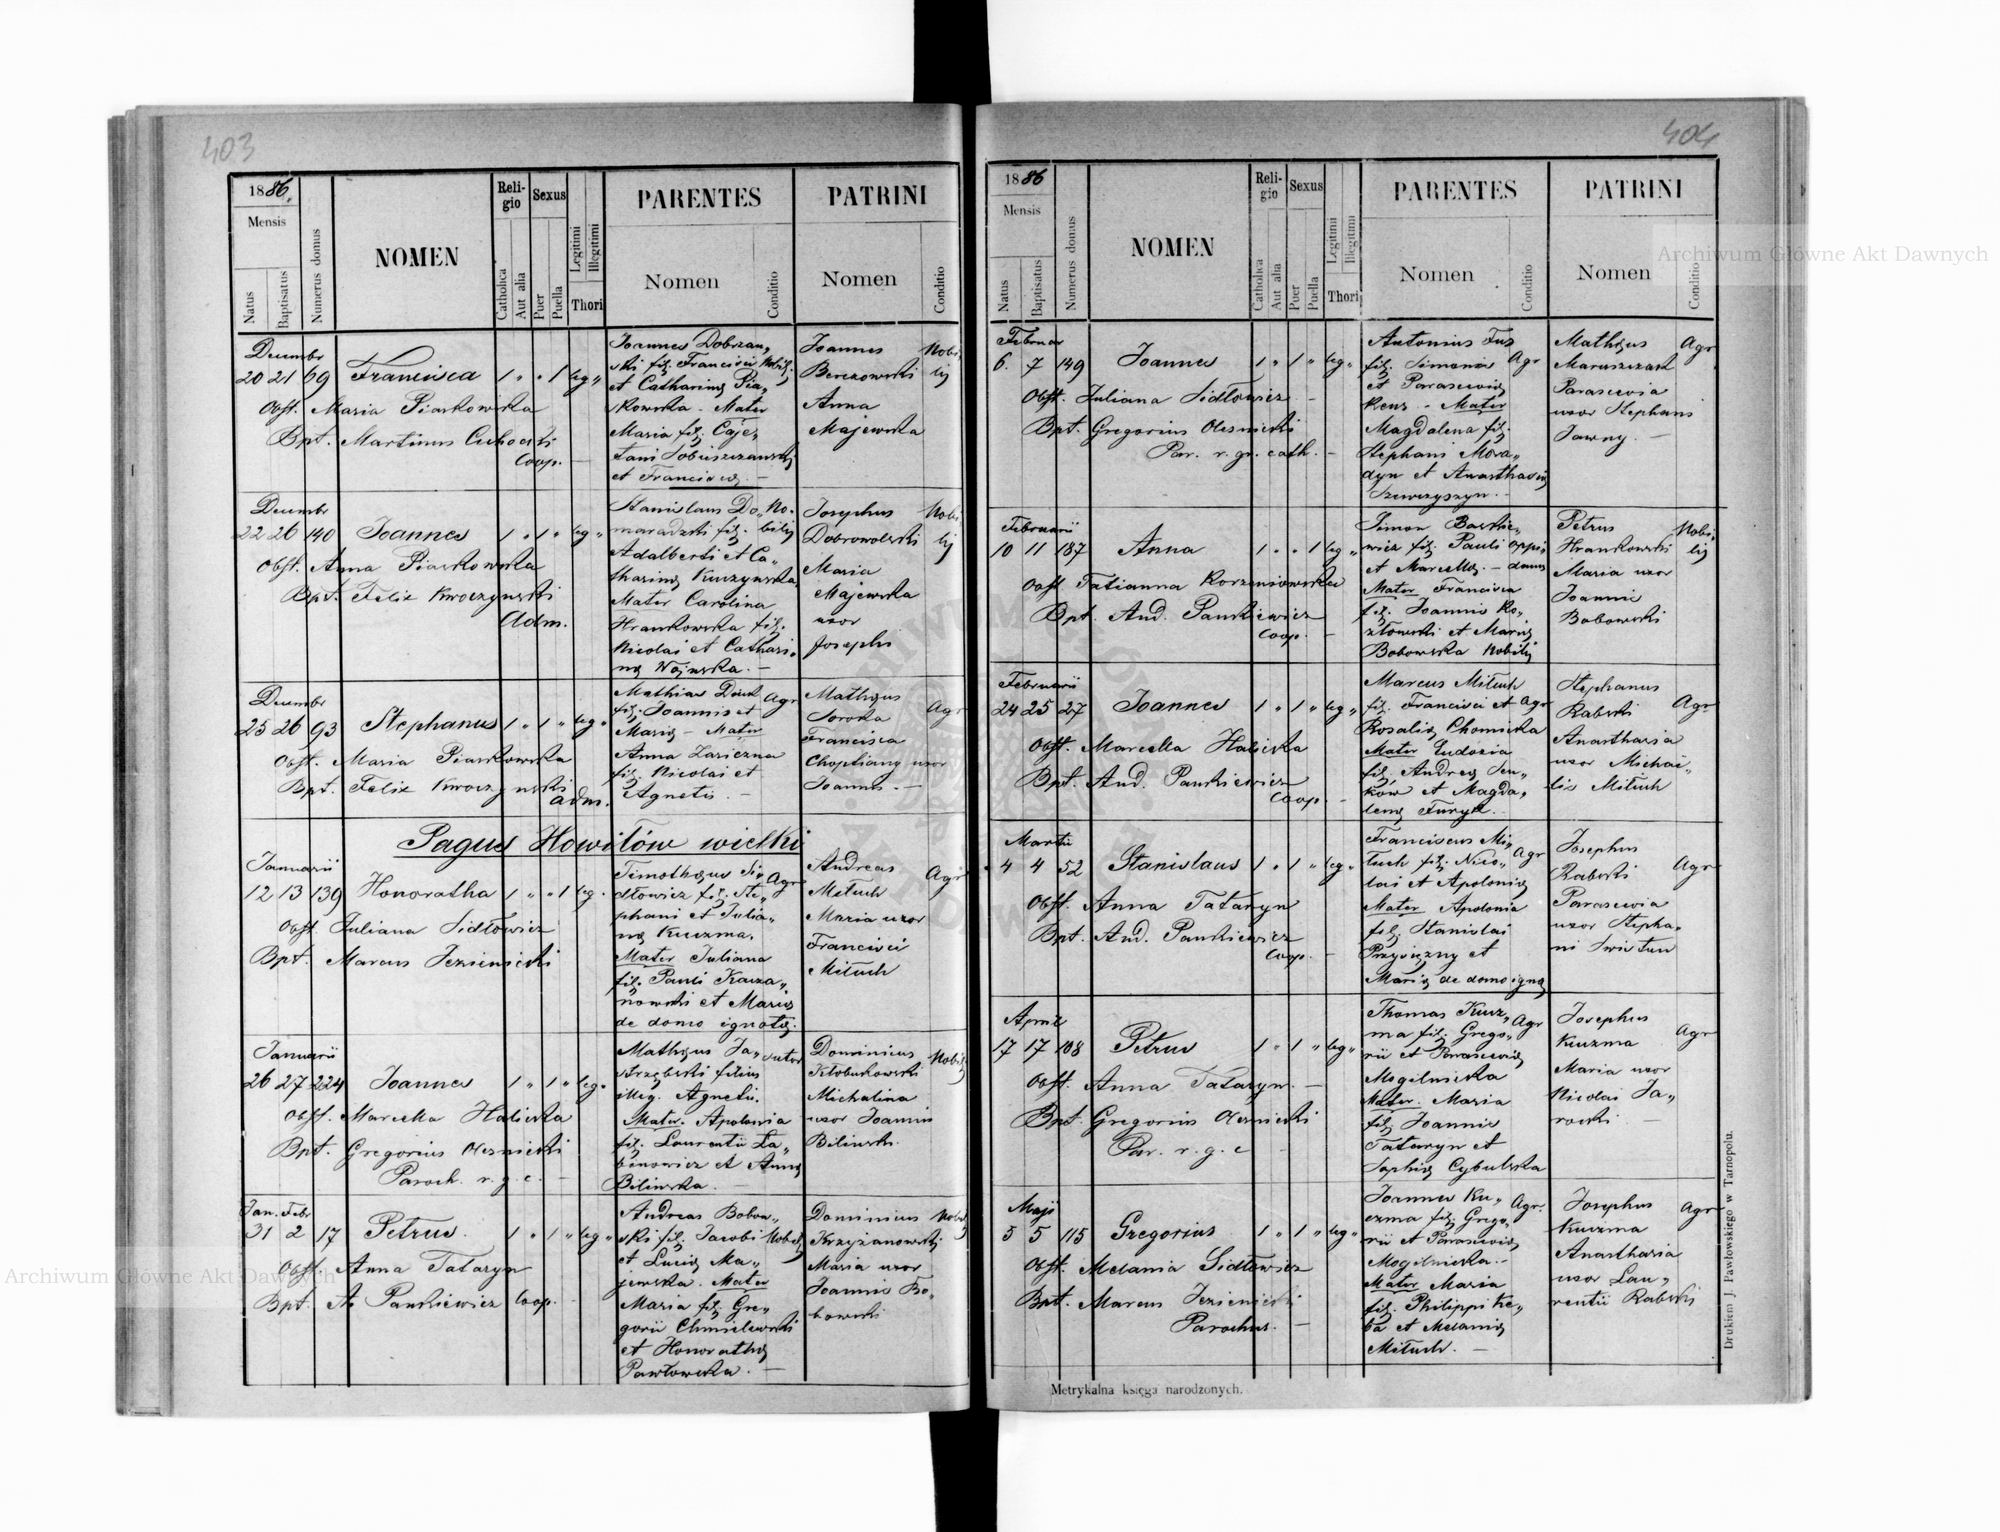 403
1886.
Mensis
Natus
Baptisatus
Numerus domus
NOMEN
Religio
Catholica
Aut alia
Sexus
Puer
Puella
Legitimi
Illegitimi
Thori
PARENTES
Nomen
Conditio
PATRINI
Nomen
Conditio
Decembr
20 21 69 Francisca 1 " " 1 leg "
Obst. Maria Piaskowska
Bpt. Martinus Cichocki
Coop. —
Joannes Dobrzań„
ski fil. Francisci Nobil.
et Catharinę Pia„
skowska - Mater
Maria fil. Caje„
tani
et Francisca. —
Joannes Nobi„
Berezowski lis
Anna
Majewska
Decembr
22 26 140 Joannes 1 " 1 " leg "
Obst. Anna Piaskowska
Bpt. Felix Kwoczyński
Adm.
Stanislaus Do„ No„
maradzki fil. bilis
Adalberti et Ca„
tharinę Kuczyńska
Mater Carolina
Hrankowska fil.
Nicolai et Cathari„
nę Wojnska. —
Josephus Nobi
Dobrowolski lis
Maria
Majewska
uxor
Josephi
Decembr
25 26 93 Stephanus 1 " 1 " leg "
Obst. Maria Piaskowska
Bpt. Felix Kwoczyński
Adm.
Mathias Agr
fil. Joannis et
Marię - Mater
Anna Zariczna
fil. Nicolai et
Agnetis. —
Mathęus Agr
Soroka
Francisca
Choptiany uxor
Joannis. —
Pagus Howiłów wielki
Januarii
12 13 139 Honoratha 1 " " 1 leg.
Obst. Juliana Sidłowicz
Bpt. Marcus Jezienicki
Timothęus Si„ Agr
dłowicz fil. Ste„
phani et Julia„
nę Kuczma.
Mater Juliana
fil. Pauli Kacza„
nowski et Marię
de domo ignotę.
Andreas Agr
Mituch
Maria uxor
Francisci
Mituch
Januarii
26 27 224 Joannes 1 " 1 " leg "
Obst. Marcella Halicka
Bpt. Gregorius Olesnicki
Paroch. r. g. c. —
Mathęus Ja„ sutor
strzębski filius
illeg. Agnetis.
Mater. Apolonia
fil. Laurentii La„
binowicz et Annę
Bilińska. —
Dominicus Nobil.
Kłobukowski
Michalina
uxor Joannis
Biliński.
Jan. Febr
31 2 17 Petrus. 1 " 1 " leg "
Obst. Anna Tataryn
Bpt. A. Pankiewicz Coop. —
Andreas Bobow„
ski fil. Jacobi Nobil.
et Lucię Ma„
jewska. Mater
Maria fil. Gre„
gorii Chmielewski
et Honorathę
Pawłowska. —
Dominicus Nobil
Krzyżanowski
Maria uxor
Joannis Bo„
bowski
404
1886
Mensis
Natus
Baptisatus
Numerus domus
NOMEN
Religio
Catholica
Aut alia
Sexus
Puer
Puella
Legitimi
Illegitimi
Thori
PARENTES
Nomen
Conditio
PATRINI
Nomen
Conditio
Februar
6. 7 149 Joannes 1 " 1 " leg "
Obst. Juliana Sidłowicz -
Bpt. Gregorius Olesnicki
Par. r. gr. cath. —
Antonius Fus
fil. Simonis Agr
et Parascevię
Kenz - Mater
Magdalena fil.
Stephani Mora„
dyn et Anasthasię
Szewczyszyn. —
Mathęus Agr
Maruszczak
Parascevia
uxor Stephani
Jawny. —
Februarii
10 11 187 Anna 1 " " 1 leg "
Obst Tatianna Korzeniowska
Bpt. And. Pankiewicz
Coop. —
Simon Baskie„
wicz fil. Pauli oppi„
et Marcellę. - danus
Mater Francisca
fil. Joannis Ko„
złowski et Marię
Bobowska Nobilis
Petrus Nobi„
Hrankowski lis
Maria uxor
Joannis
Bobowski
Februarii
24 25 27 Joannes 1 " 1 " leg "
Obst. Marcella Halicka
Bpt. And. Pankiewicz
Coop. —
Marcus Mituch
fil. Francisci et Agr
Rosalię Chomicka
Mater Eudoxia
fil. Andreę Sen„
kow et Magda„
lenę Furyk. —
Stephanus
Rabski Agr
Anasthasia
uxor Michae„
lis Mituch
Martii
4 4 52 Stanislaus 1 " 1 " leg "
Obst. Anna Tataryn
Bpt. And. Pankiewicz
Coop. —
Franciscus Mi„
tuch fil. Nico„ Agr
lai et Apolonię
Mater Apolonia
fil. Stanislai
Przysiężny et
Marię de domo ignę
Josephus
Rabski Agr
Parascevia
uxor Stepha„
ni Swistun
Aprils
17 17 108 Petrus 1 " 1 " leg "
Obst. Anna Tataryn. —
Bpt. Gregorius Olesnicki
Par. r. g. c —
Thomas Kucz„
ma fil. Grego„ Agr
rii et Parascevię
Mogilnicka
Mater. Maria
fil. Joannis
Tataryn et
Sophię Cybulska
Josephus
Kuczma Agr
Maria uxor
Nicolai Ja„
rocki. —
Maji
5 5 115 Gregorius 1 " 1 " leg "
Obst. Melania Sidłowicz
Bpt. Marcus Jezienicki
Parochus. —
Joannes Ku„ Agr.
czma fil. Grego„
rii et Parascevię
Mogilnicka. -
Mater Maria
fil. Philippi Ke„
ba et Melanię
Mituch. —
Josephus Agr
Kuczma
Anasthasia
uxor Lau„
rentii Rabski
Metrykalna księga narodzonych.
Drukiem J. Pawłowskiego w Tarnopolu.
Archiwum Główne Akt Dawnych
Archiwum Główne Akt Dawnych